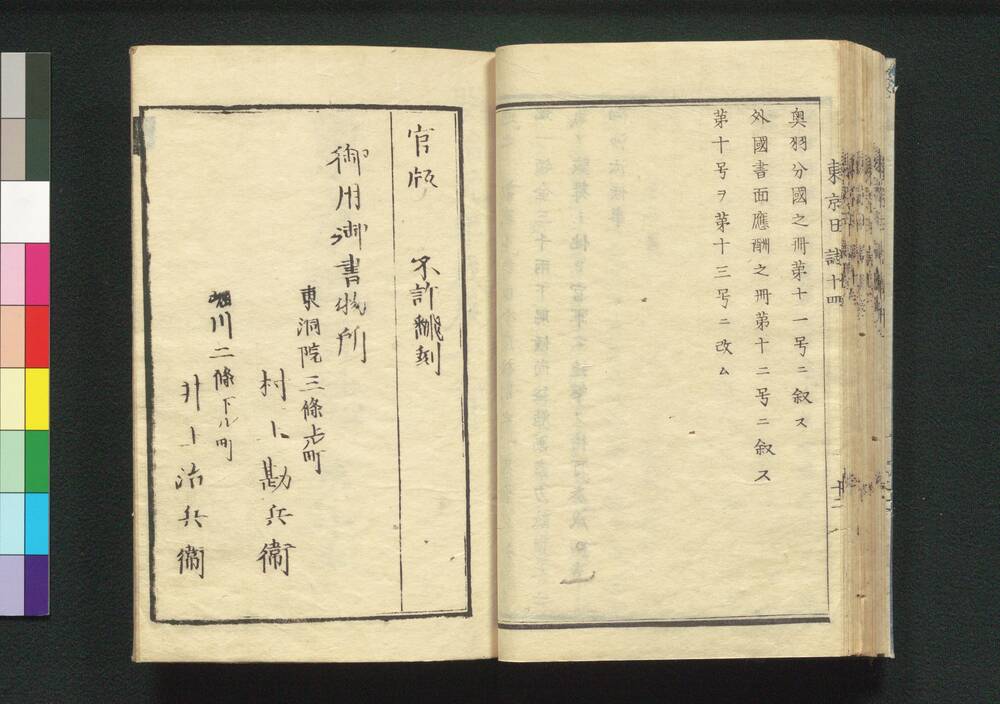 奥羽分國之冊第十一号ニ叙ス
外國書面應酬之冊第十二号ニ叙ス
第十号ヲ第十三号ニ改ム
東京日誌十四
官版 不許翻刻
御用御書物所
東洞院三條上ル町
村上勘兵衛
堀川二條下ル町
井上治兵衛